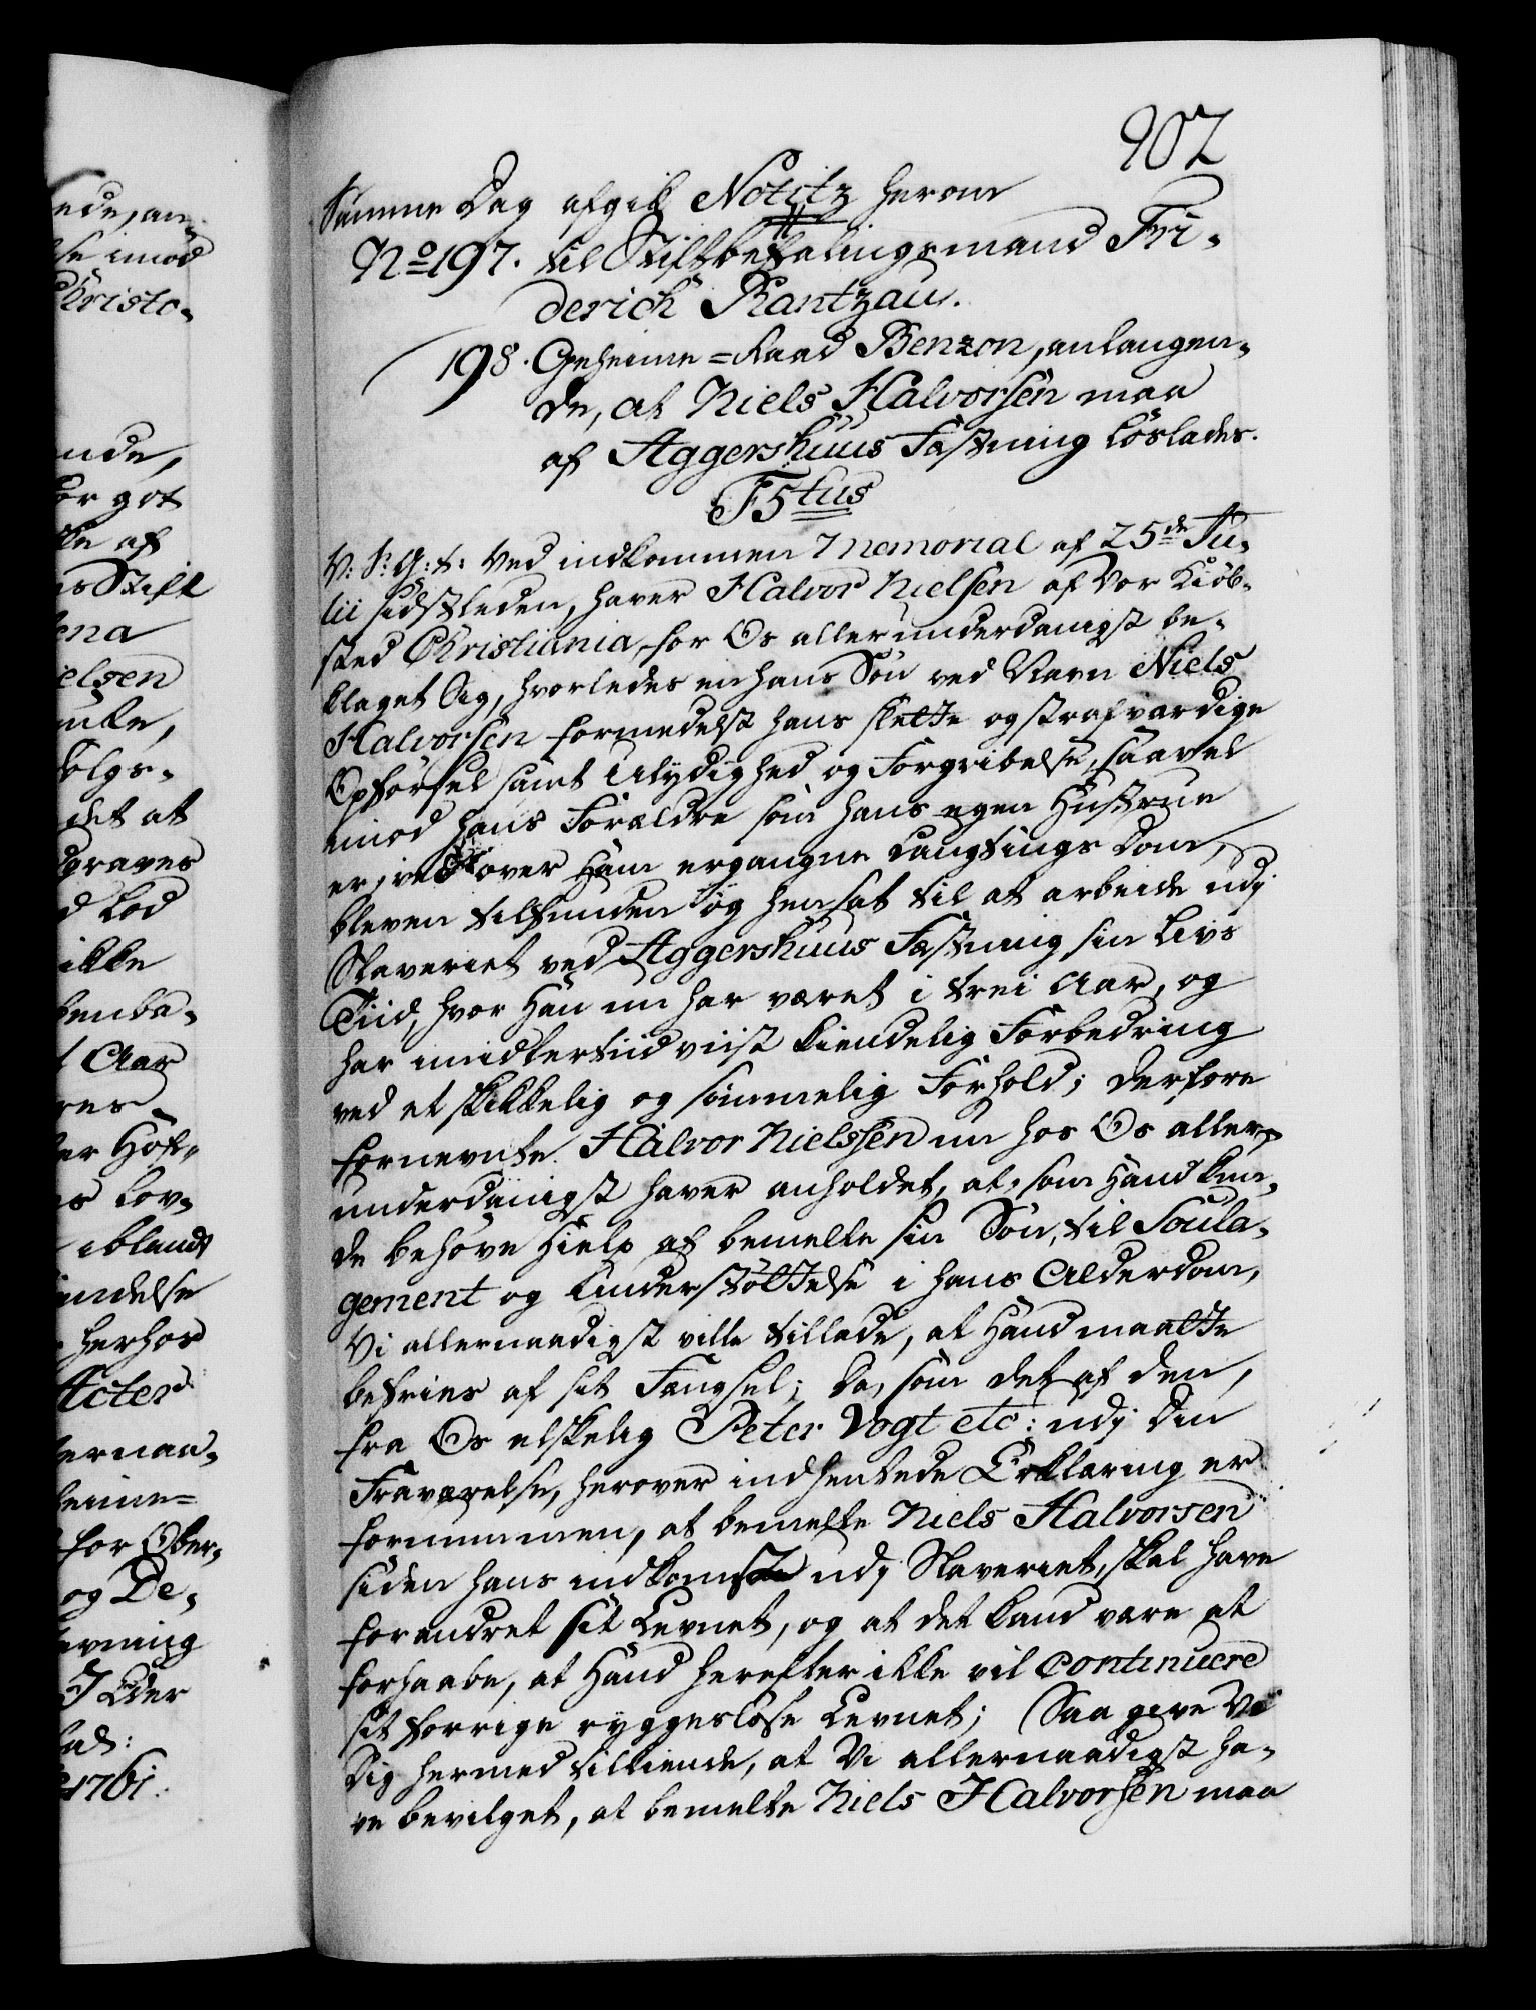 902
Samme Dag afgik Notitz herom
No 197. til Stiftbefalingsmand Fri-
derich Rantzau.
198. Geheime=Raad Benzon, anlangen-
de, at Niels Halvorsen maa
af Aggershuus Fæstning løslades.
F5tus
V: S: G: t: Ved indkommen Memorial af 25de Ju-
lii sidstleden, haver Halvor Nielsen af Vor Kiøb-
sted Christiania, for Os allerunderdanigst be-
klaget Sig, hvorledes en hans Søn ved Navn Niels
Halvorsen formedelst hans slette og strafværdige
Opførsel samt Ulydighed og Forgribelse, saavel
imod hans Forældre som hans egen Hustrue
er, ved over Ham ergangne Laugtings Dom,
bleven tilfunden og hensat til at arbeide udj
Slaveriet ved Aggershuus Fæstning sin Livs
Tiid, hvor Han nu har været i trei Aar, og
har imidlertiid viist kiendelig Forbedring
ved et skikkelig og sømmelig Forhold; Derfore
fornevnte Halvor Nielssen nu hos Os aller-
underdanigst haver anholdet, at, som Hand kun-
de behøve Hielp af bemelte sin Søn, til Soula-
gement og Understøttelse i hans Alderdom,
Vi allernaadigst ville tillade, at Hand maatte
befries af sit Fængsel; Da, som det af den,
fra Os elskelig Peter Vogt etc: udj Din
Fraværelse, herover indhentede Erklæring er
fornummen, at bemelte Niels Halvorsen
siden hans indkomst udj Slaveriet, skal have
forandret sit Levnet, og at det kand være at
forhaabe, at Hand herefter ikke vil continuere
sit forrige ryggesløse Levnet; Saa give Vi
Dig hermed tilkiende, at Vi allernaadigst ha-
ve bevilget, at bemelte Niels Halvorsen maa